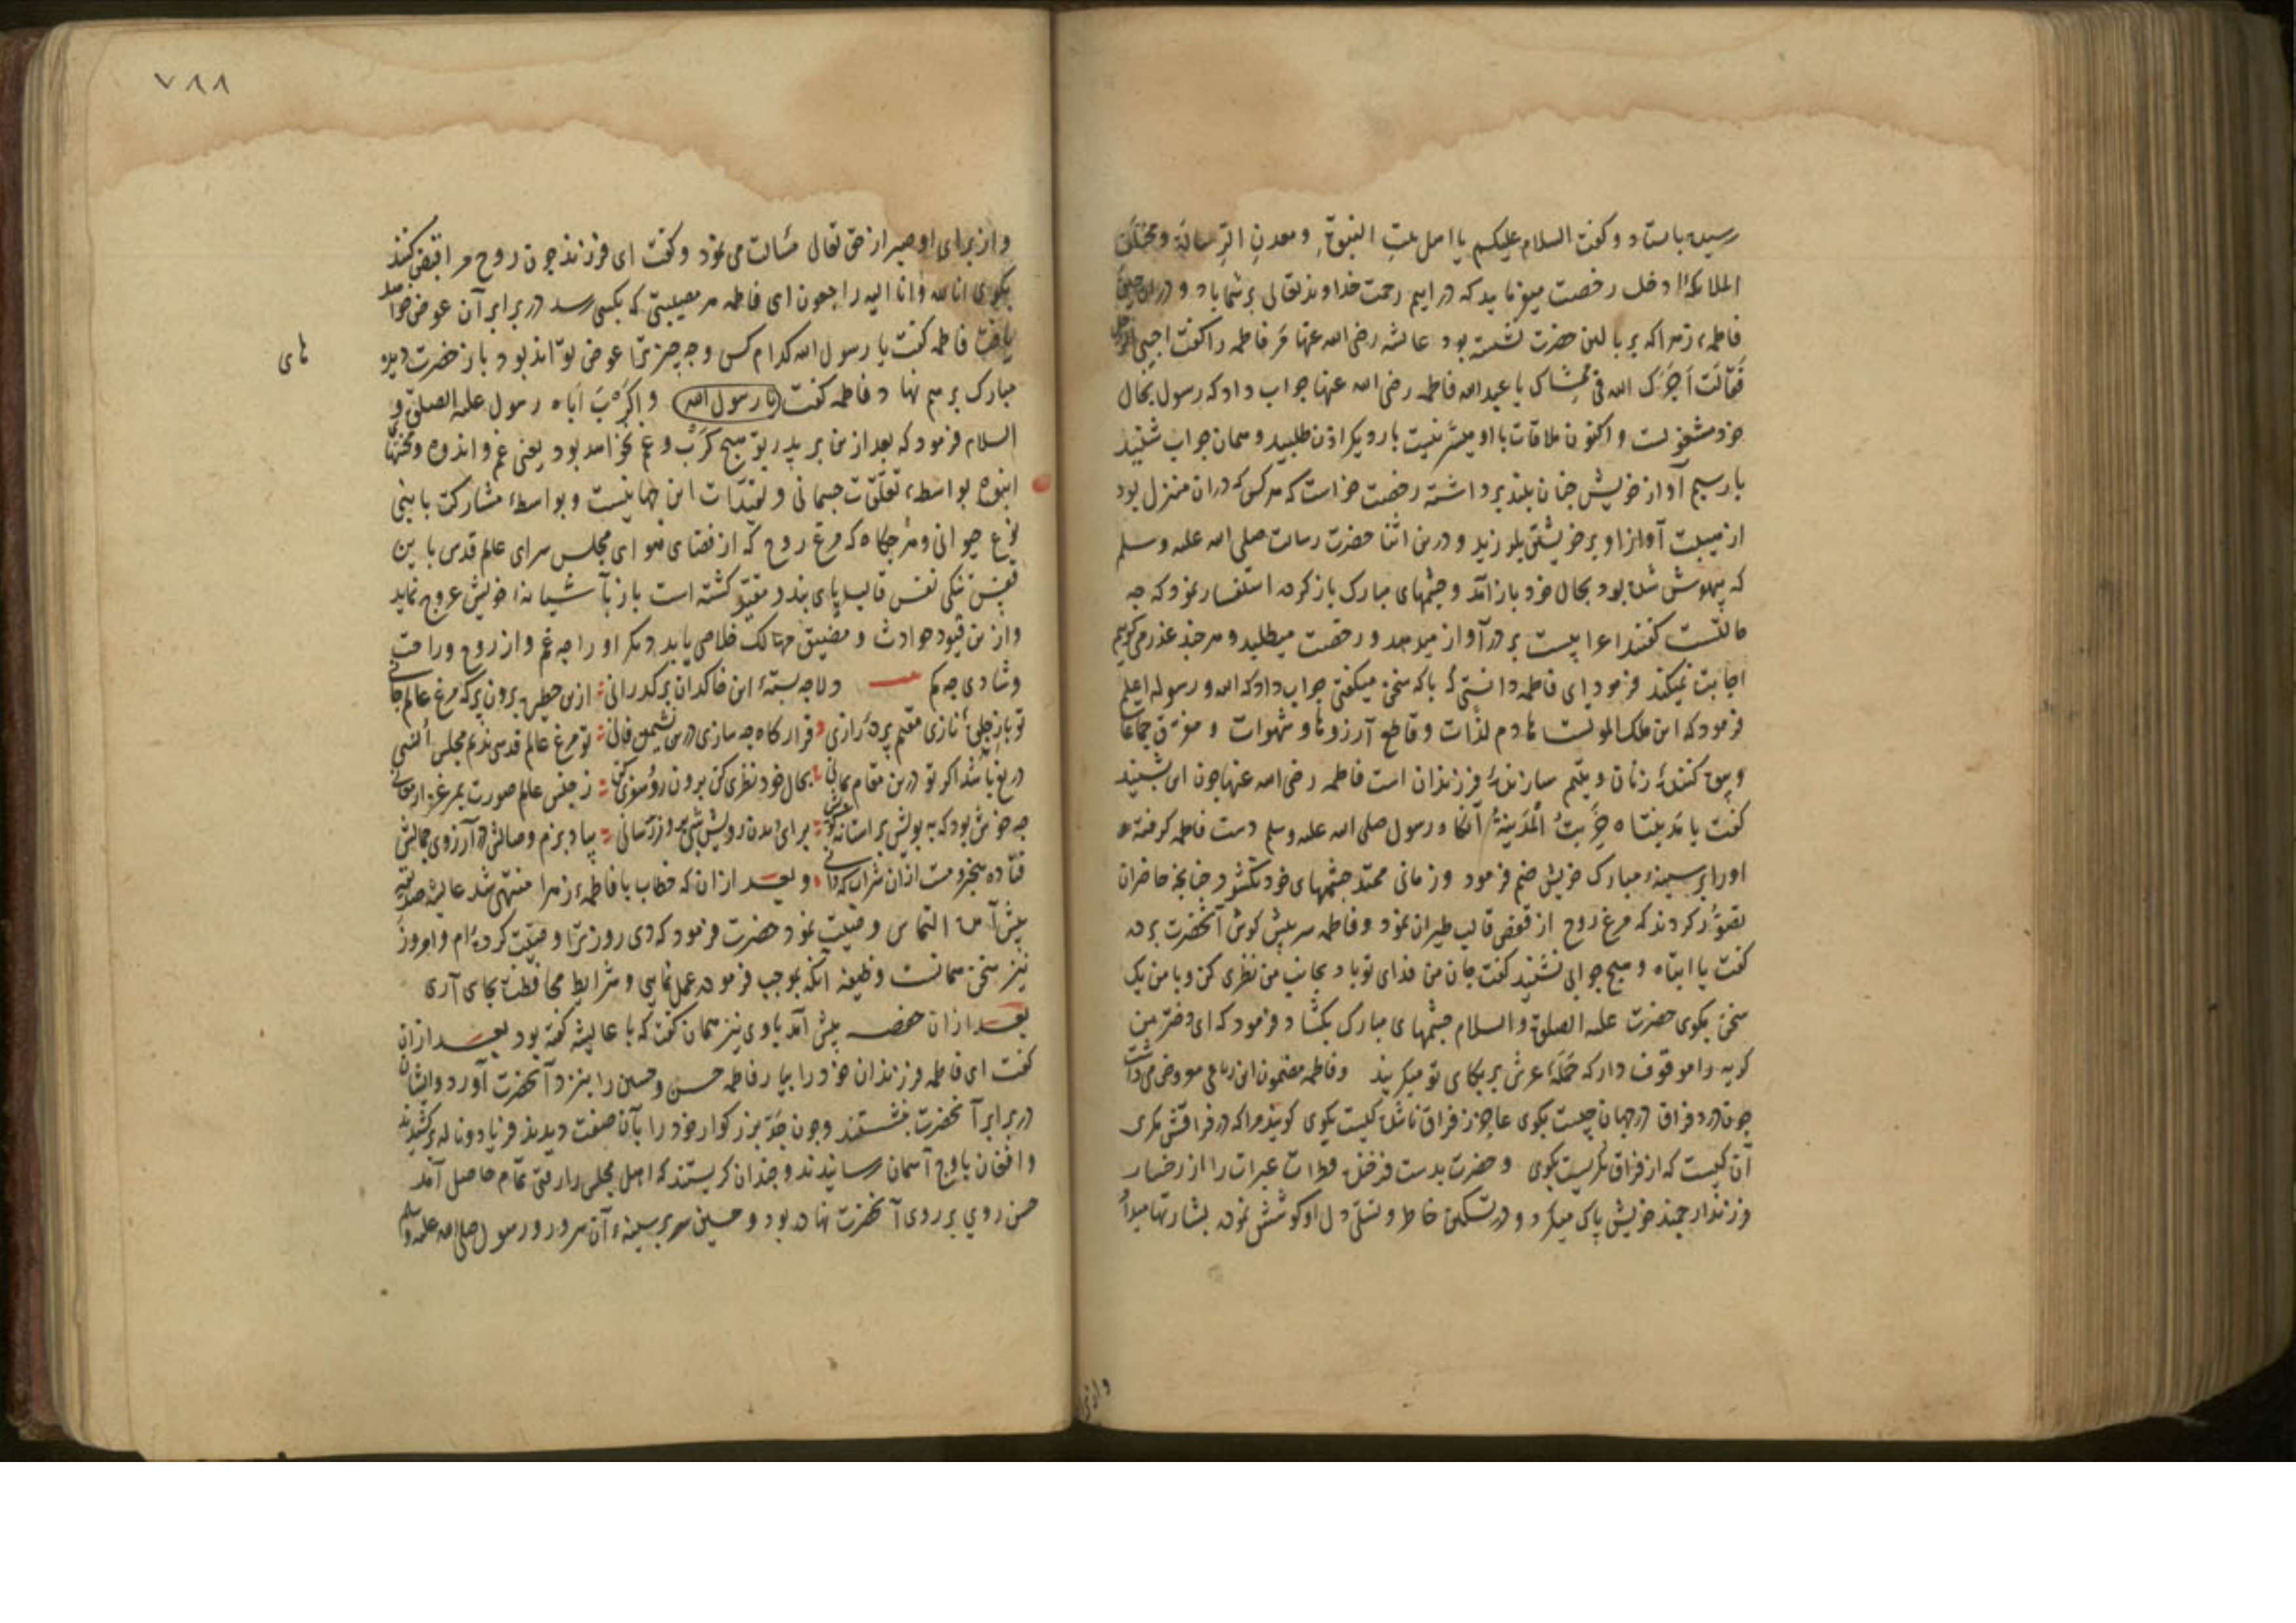 رسیده بایستاد و کفت السلام علیکم یا اهل بیت النبوة و معدن الرسالة و مختلف
الملائکة ادخل رخصت میفرمایید که درایم رحمت خداوند تعالی بر شما باد و درین حین
فاطمهٔ زهرا که بر بالین حضرت نشسته بود عائشه رضی الله عنها مر فاطمه را کفت اجیبی الرجل
فقالت آجرک الله فی ممشاک یا عبد الله فاطمه رضی الله عنها جواب داد که رسول بحال
خود مشغولست و اکنون ملاقات با او میسر نیست بار دیکر اذن طلبید و همان جواب شنید
بار سیم آواز خویش چنان بلند برداشته رخصت خواست که هر کس که دران منزل بود
از هیبت آواز او بر خویشتن بلرزید و درین اثنا حضرت رسالت صلی الله علیه وسلم
که بیهوش شده بود بحال خود باز آمد و چشمهای مبارک باز کرده استفسار نمود که چه
حالتست کفتند اعرابیست بر در آواز میدهد و رخصت میطلبد و هر چند عذر می کوییم
اجابت نمیکند فرمود ای فاطمه دانستی که با که سخن میکفتی جواب داد که الله و رسوله اعلم
فرمود که این ملک الموتست هادم لذات و قاطع آرزوها و شهوات و مفرق جماعات
و بیوه کنندهٔ زنان و یتیم سازندهٔ فرزندان است فاطمه رضی الله عنها چون این بشنید
کفت یا مدینتاه خربت المدینة آنکاه رسول صلی الله علیه وسلم دست فاطمه کرفته
او را بر سینهٔ مبارک خویش ضم فرمود و زمانی ممتد چشمهای خود نکشود چنانچه حاضران
تصور کردند که مرغ روح از قفص قالب طیران نمود و فاطمه سر پیش کوش آنحضرت برده
کفت یا ابتاه و هیچ جوابی نشنید کفت جان من فدای تو باد بجانب من نظری کن و با من یک
سخن بکوی حضرت علیه الصلوة والسلام چشمهای مبارک بکشاد و فرمود که ای دختر من
کریه را موقوف دار که حملهٔ عرش بر بکای تو میکریند و فاطمه مضمون این رباعی معروض می داشت
چون درد فراق در جهان چیست بکوی عاجز ز فراق ناشده کیست بکوی کویند مرا که در فراقش مکری
آن کیست که از فراق نکریست بکوی و حضرت بدست فرخنده قطرات عبرات را از رخسار
فرزند ارجمند خویش پاک میکرد و در تسکین خاطر و تسلی دل او کوشش نموده بشارتها میداد
و از برا
٧٨٨
و از برای او صبر از حق تعالی مسألت می نمود و کفت ای فرزند چون روح مرا قبض کنند
بکوی انا لله و انا الیه راجعون ای فاطمه هر مصیبتی که بکسی رسد در برابر آن عوض خواهد
یافت فاطمه کفت یا رسول الله کدام کس و چه چیز ترا عوض تواند بود باز حضرت دیده
های
مبارک بر هم نهاد فاطمه کفت یا رسول الله واکرب اباه رسول علیه الصلوة و
السلام فرمود که بعد از من بر پدر تو هیچ کرب و غم نخواهد بود یعنی غم و اندوه و محنتهای
انبوه بواسطهٔ تعلقات جسمانی و تقیدات این جهانیست و بواسطهٔ مشارکت با بنی
نوع حیوانی و هر جکاه که مرغ روح که از فضای هوای مجلس سرای عالم قدس باین
قفس تنکی نفس قالب پای بند و مقید کشته است باز بآشیانهٔ خویش عروج نماید
و ازین قیود حوادث و مضیق مهالک خلاصی یابد دیکر او را چه غم و از روح و راحت
و شادی چه کم دلا چه بستهٔ این خاکدان بر کذرانی ازین حظیره برون پر که مرغ عالم جانی
تو باز خلوت نازی مقیم پردهٔ رازی قرارکاه چه سازی درین نشیمن فانی تو مرغ عالم قدسی ندیم مجلس انسی
دریغ باشد اکر تو درین مقام بمانی بحال خود نظری کن برون رو و سفری کن ز حبس عالم صورت بمرغزار معانی
چه خوش بود که به بویش بر آستانهٔ کویش برای دیدن رویش شبی بروز رسانی بیاد بزم وصالش در آرزوی جمالش
فتاده بیخود و مست ازان شراب که دانی و بعد ازان که خطاب با فاطمهٔ زهرا منتهی شد عایشه صدیقه
پیش آمده التماس وصیت نمود حضرت فرمود که دی روز ترا وصیت کرده‌ام و امروز
نیز سخن همانست وظیفه انکه بموجب فرموده عمل نمایی و شرایط محافظت بجای آری
بعد ازان حفصه پیش آمد با وی نیز همان کفت که با عایشه کفته بود بعد ازان
کفت ای فاطمه فرزندان خود را بیار فاطمه حسن و حسین را بنزد آنحضرت آورد و ایشان
در برابر آنحضرت بنشستند و چون جد بزرکوار خود را بآن صفت دیدند فریاد و ناله برکشیدند
و افغان باوج آسمان رسانیدند و چندان کریستند که اهل مجلس را رقتی تمام حاصل آمد
حسن روی بر روی آنحضرت نهاده بود و حسین سر بر سینهٔ آن سرور و رسول صلی الله علیه وسلم